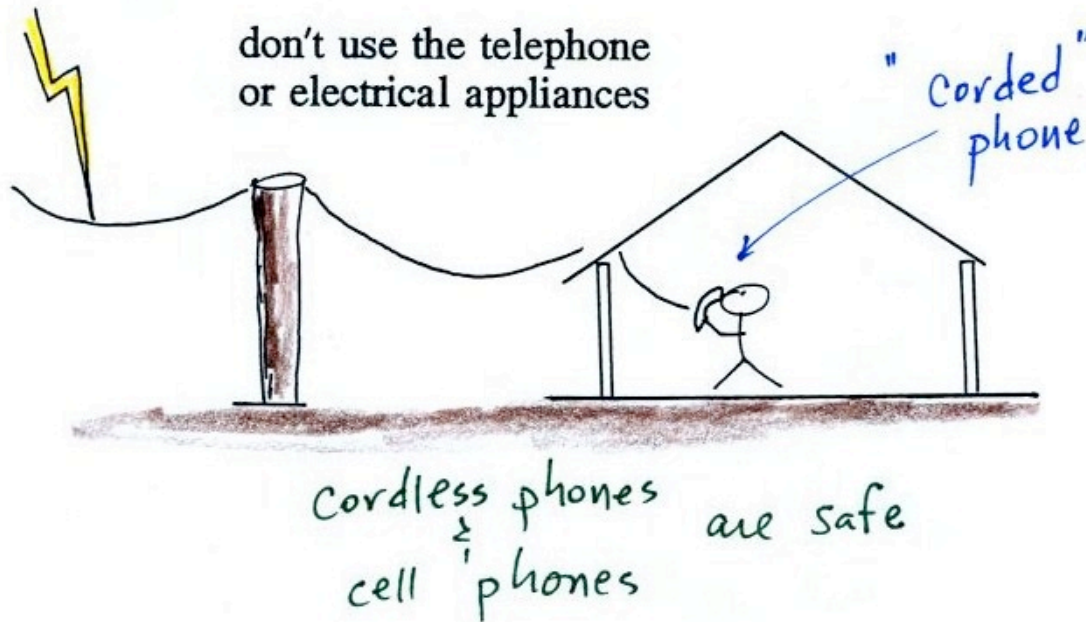 don't use the telephone
or electrical appliances
"corded"
phone
cordless phones
& are safe
cell phones